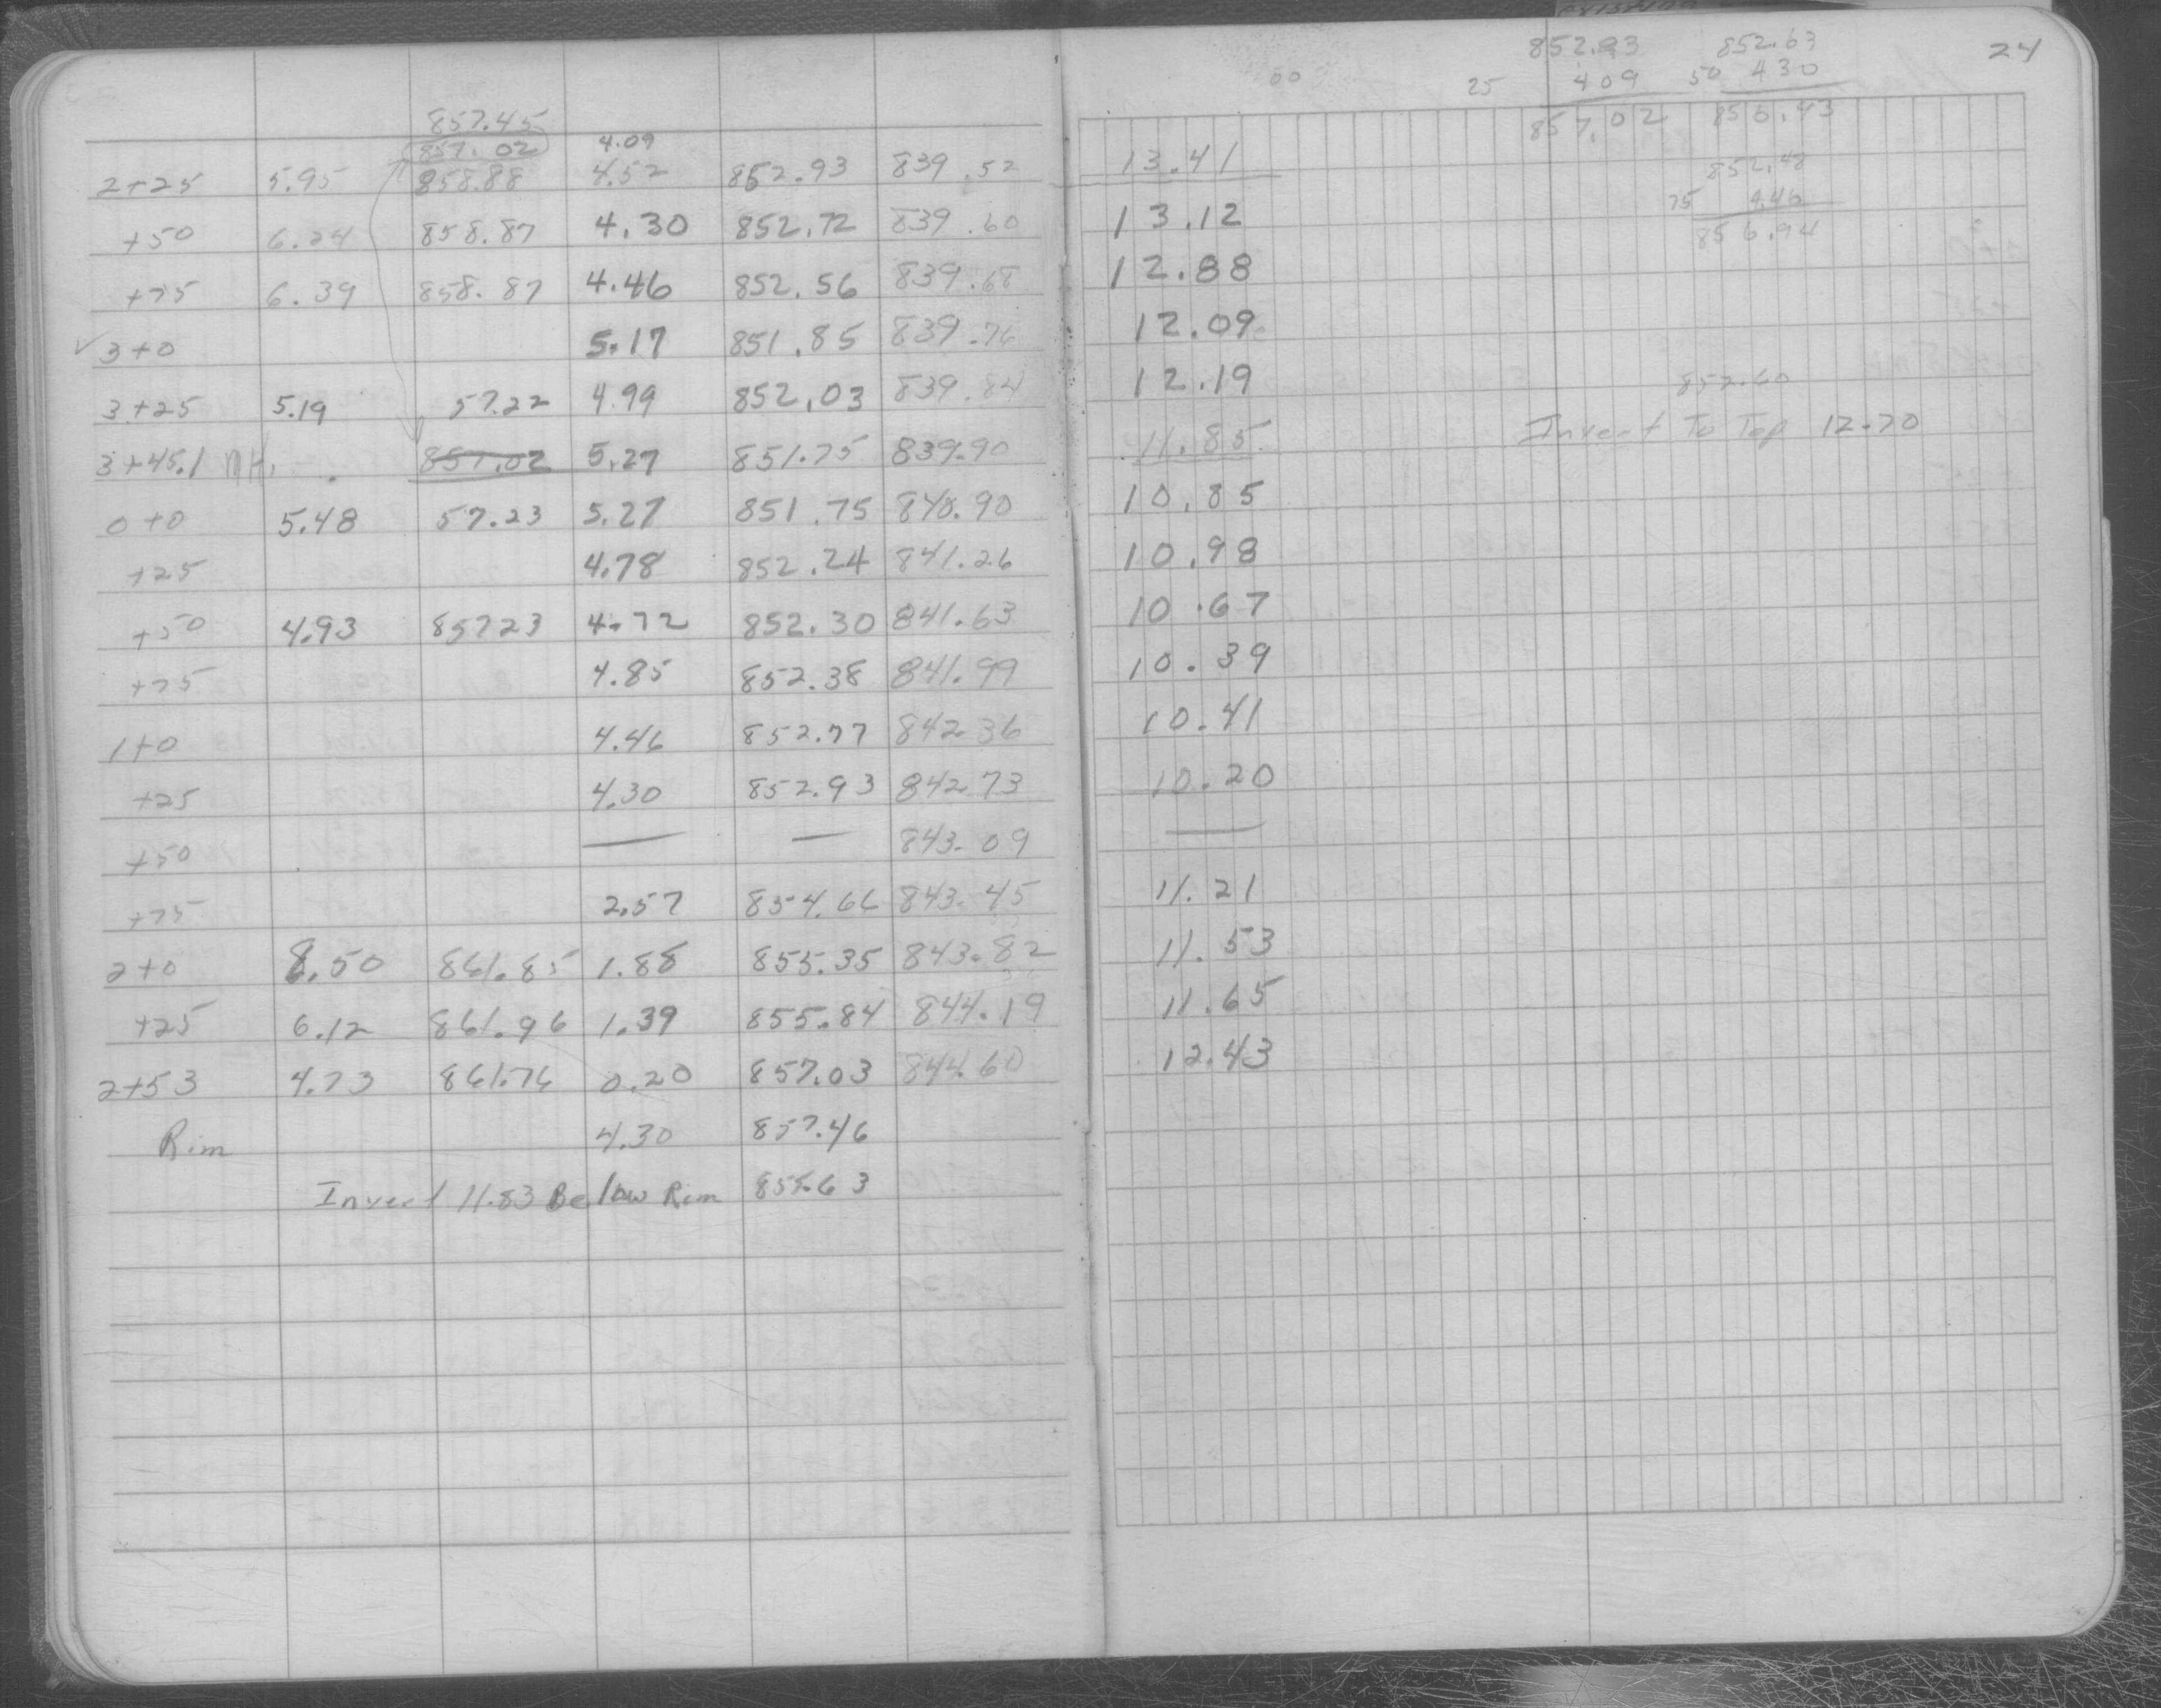 24
852.93 852.63
25 409 50 430
857.02 856.93
852.48
75 4.46
856.94
857.45
857.02 4.09
2+25 5.95 858.88 4.52 852.93 839.52 13.41
+50 6.24 858.87 4.30 852.72 839.60 13.12
+75 6.39 858.87 4.46 852.56 839.68 12.88
✓ 3+0 5.17 851.85 839.76 12.09
3+25 5.19 57.22 4.99 852.03 839.84 12.19
852.60
Invert To Top 12.70
3+45.1 MH. 857.02 5.27 851.75 839.90 11.85
0+0 5.48 57.23 5.27 851.75 840.90 10.85
+25 4.78 852.24 841.26 10.98
+50 4.93 857.23 4.72 852.30 841.63 10.67
+75 4.85 852.38 841.99 10.39
1+0 4.46 852.77 842.36 10.41
+25 4.30 852.93 842.73 10.20
+50 — — 843.09 —
+75 2.57 854.66 843.45 11.21
2+0 8.50 861.85 1.88 855.35 843.82 11.53
+25 6.12 861.96 1.39 855.84 844.19 11.65
2+53 4.73 861.76 0.20 857.03 844.60 12.43
Rim 4.30 857.46
Invert 11.83 Below Rim 855.63